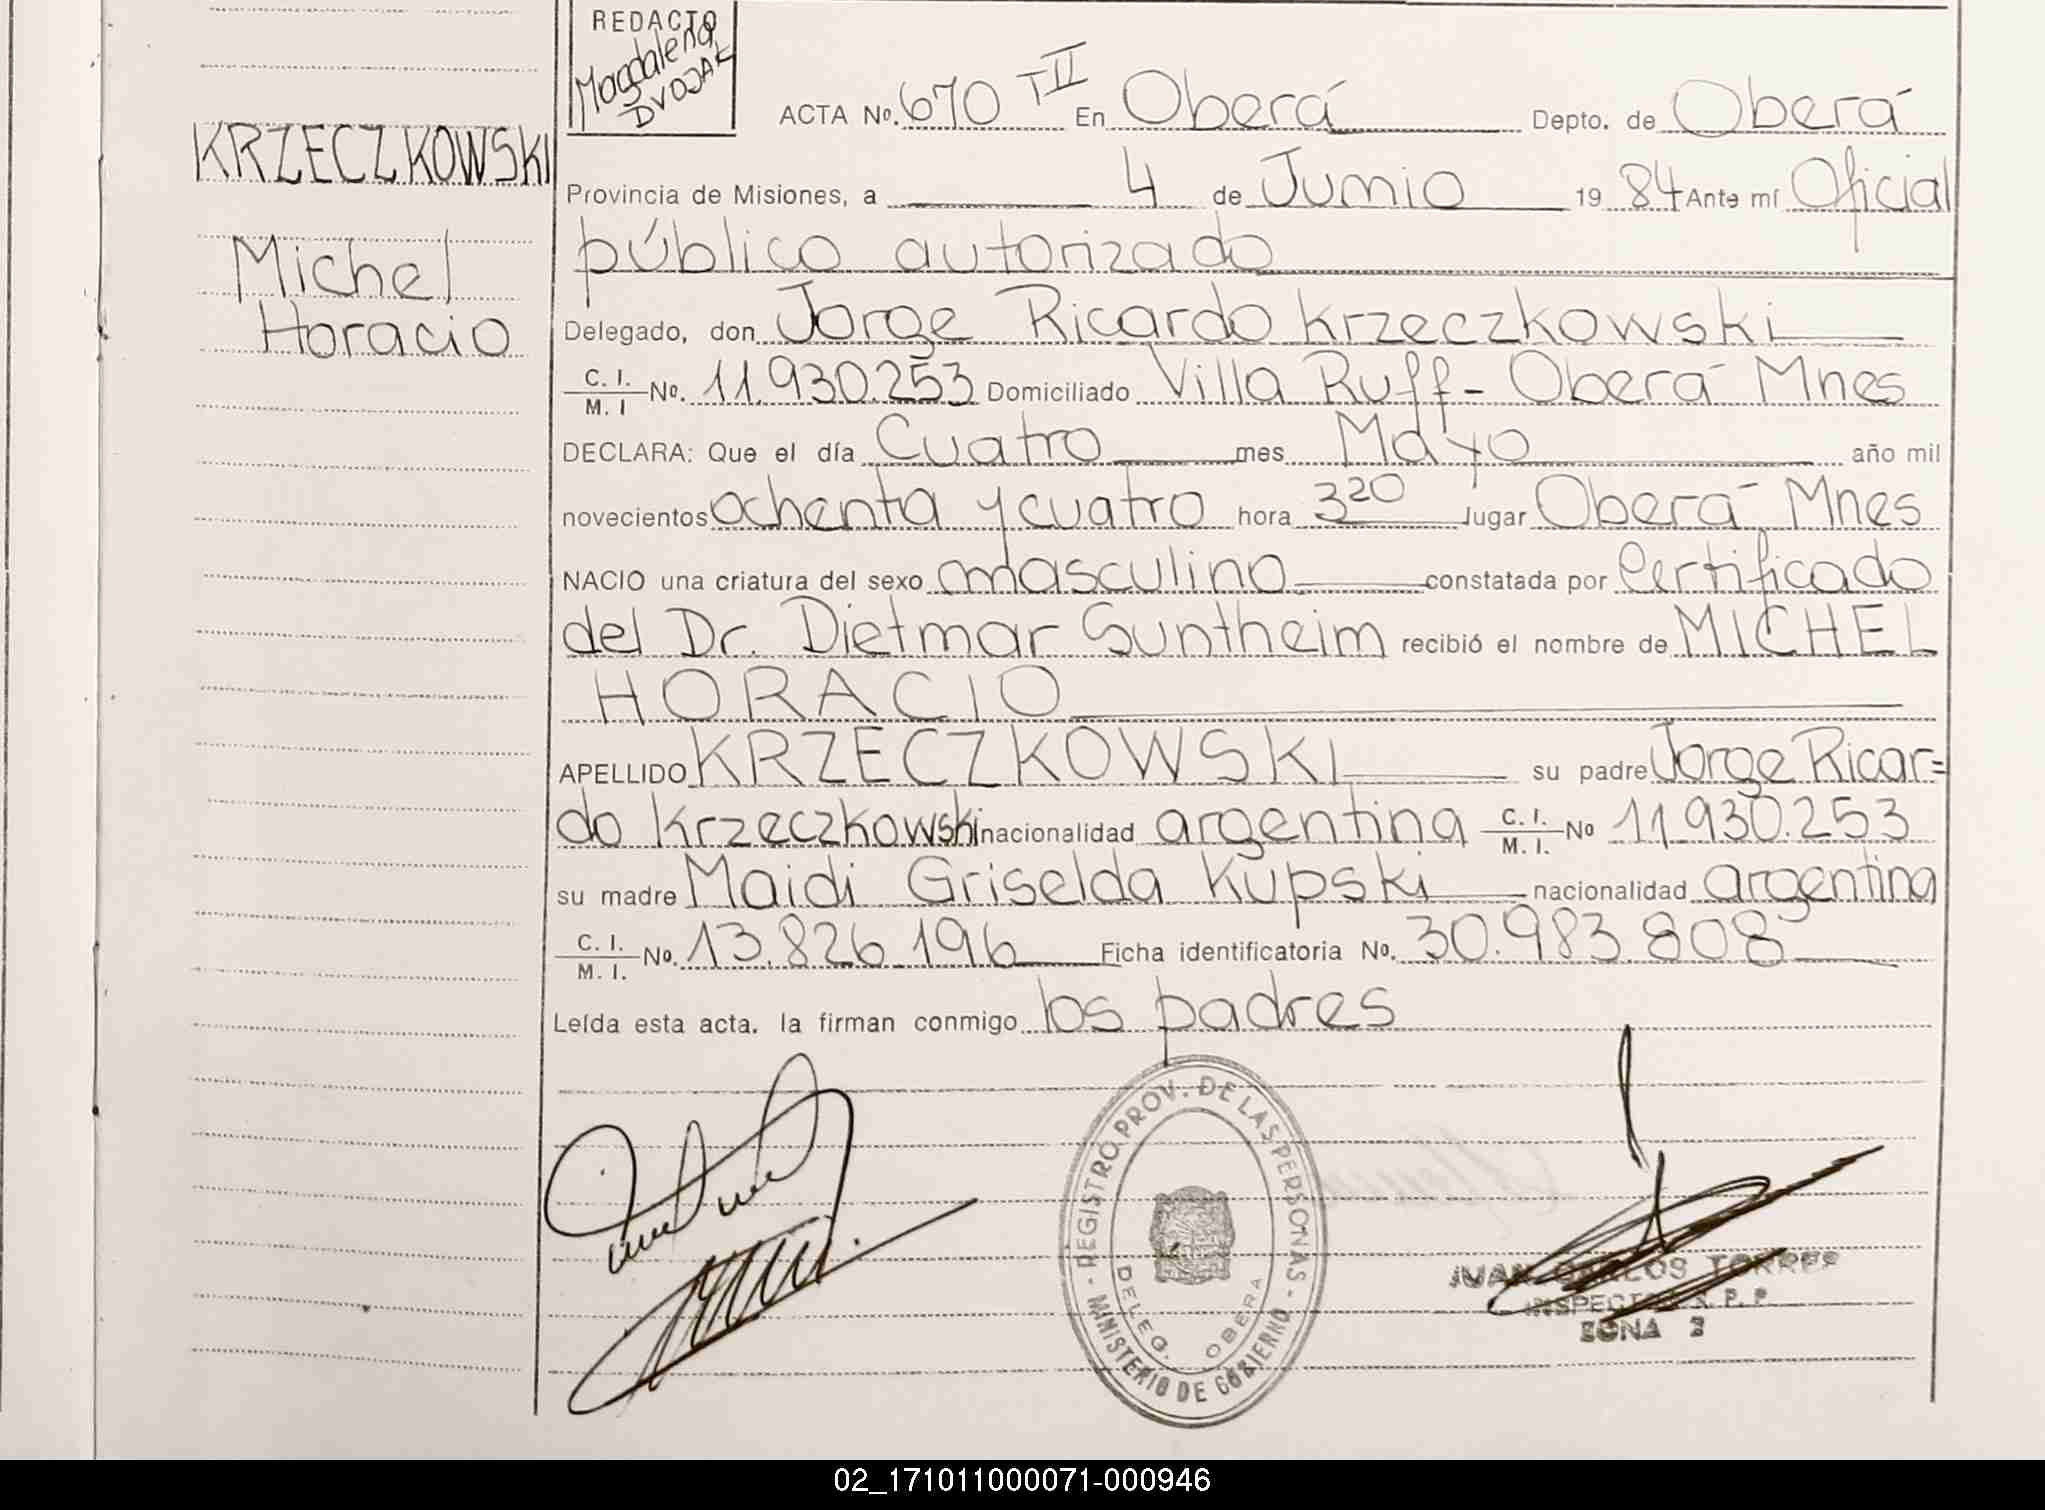 REDACTO
Magdalena
DVOJAK
KRZECZKOWSKI
Michel
Horacio
ACTA No. 670 TII En Oberá Depto. de Oberá
Provincia de Misiones, a 4 de Junio 1984 Ante mí Oficial
público autorizado
Delegado, don Jorge Ricardo Krzeczkowski
C. I. / M. I No. 11.930.253 Domiciliado Villa Ruff - Oberá Mnes
DECLARA: Que el día Cuatro mes Mayo año mil
novecientos ochenta y cuatro hora 3 20 lugar Oberá Mnes
NACIO una criatura del sexo masculino constatada por Certificado
del Dr. Dietmar Suntheim recibió el nombre de MICHEL
HORACIO
APELLIDO KRZECZKOWSKI su padre Jorge Ricar=
do Krzeczkowski nacionalidad argentina C. I. / M. I. No 11.930.253
su madre Maidi Griselda Kupski nacionalidad argentina
C. I. / M. I. No. 13.826.196 Ficha identificatoria No. 30.983.808
Leída esta acta. la firman conmigo los padres
- REGISTRO PROV. DE LAS PERSONAS -
MINISTERIO DE GOBIERNO
DELEG. OBERA
JUAN CARLOS TORRES
INSPECTOR R. P. P.
ZONA
02_171011000071-000946